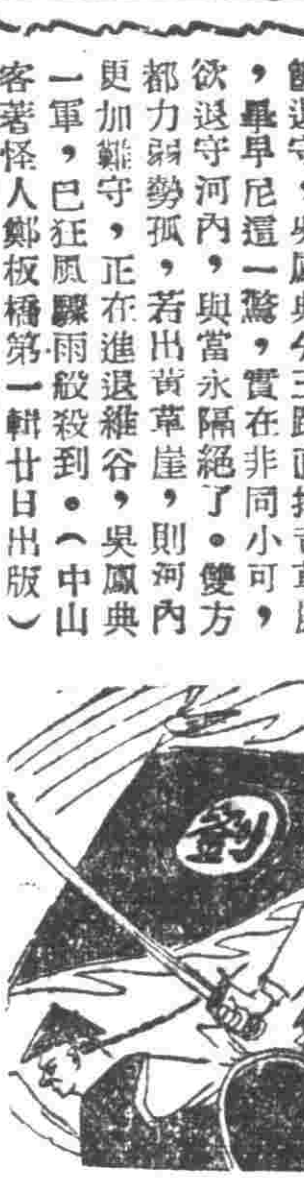 ，畢早尼這一驚，實在非同小可，
欲退守河內，與當永隔絕了。雙方
都力弱勢孤，若出黃草崖，則河內
更加難守，正在進退維谷，吳鳳典
一軍，巳狂風驟雨般殺到。（中山
客著怪人鄭板橋第一輯廿日出版）
劉